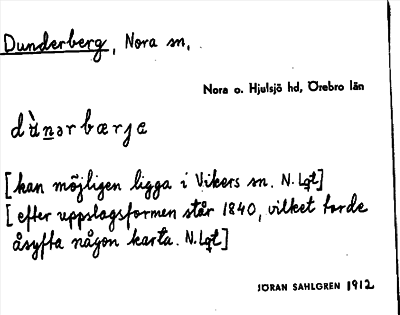 Dunderberg, Nora sn.
Nora o. Hjulsjö hd, Örebro län
dùnǝrbærja
[kan möjligen ligga i Vikers sn. N. Lqt]
[efter uppslagsformen står 1840, vilket torde
åsyfta någon karta. N. Lqt]
JÖRAN SAHLGREN 1912